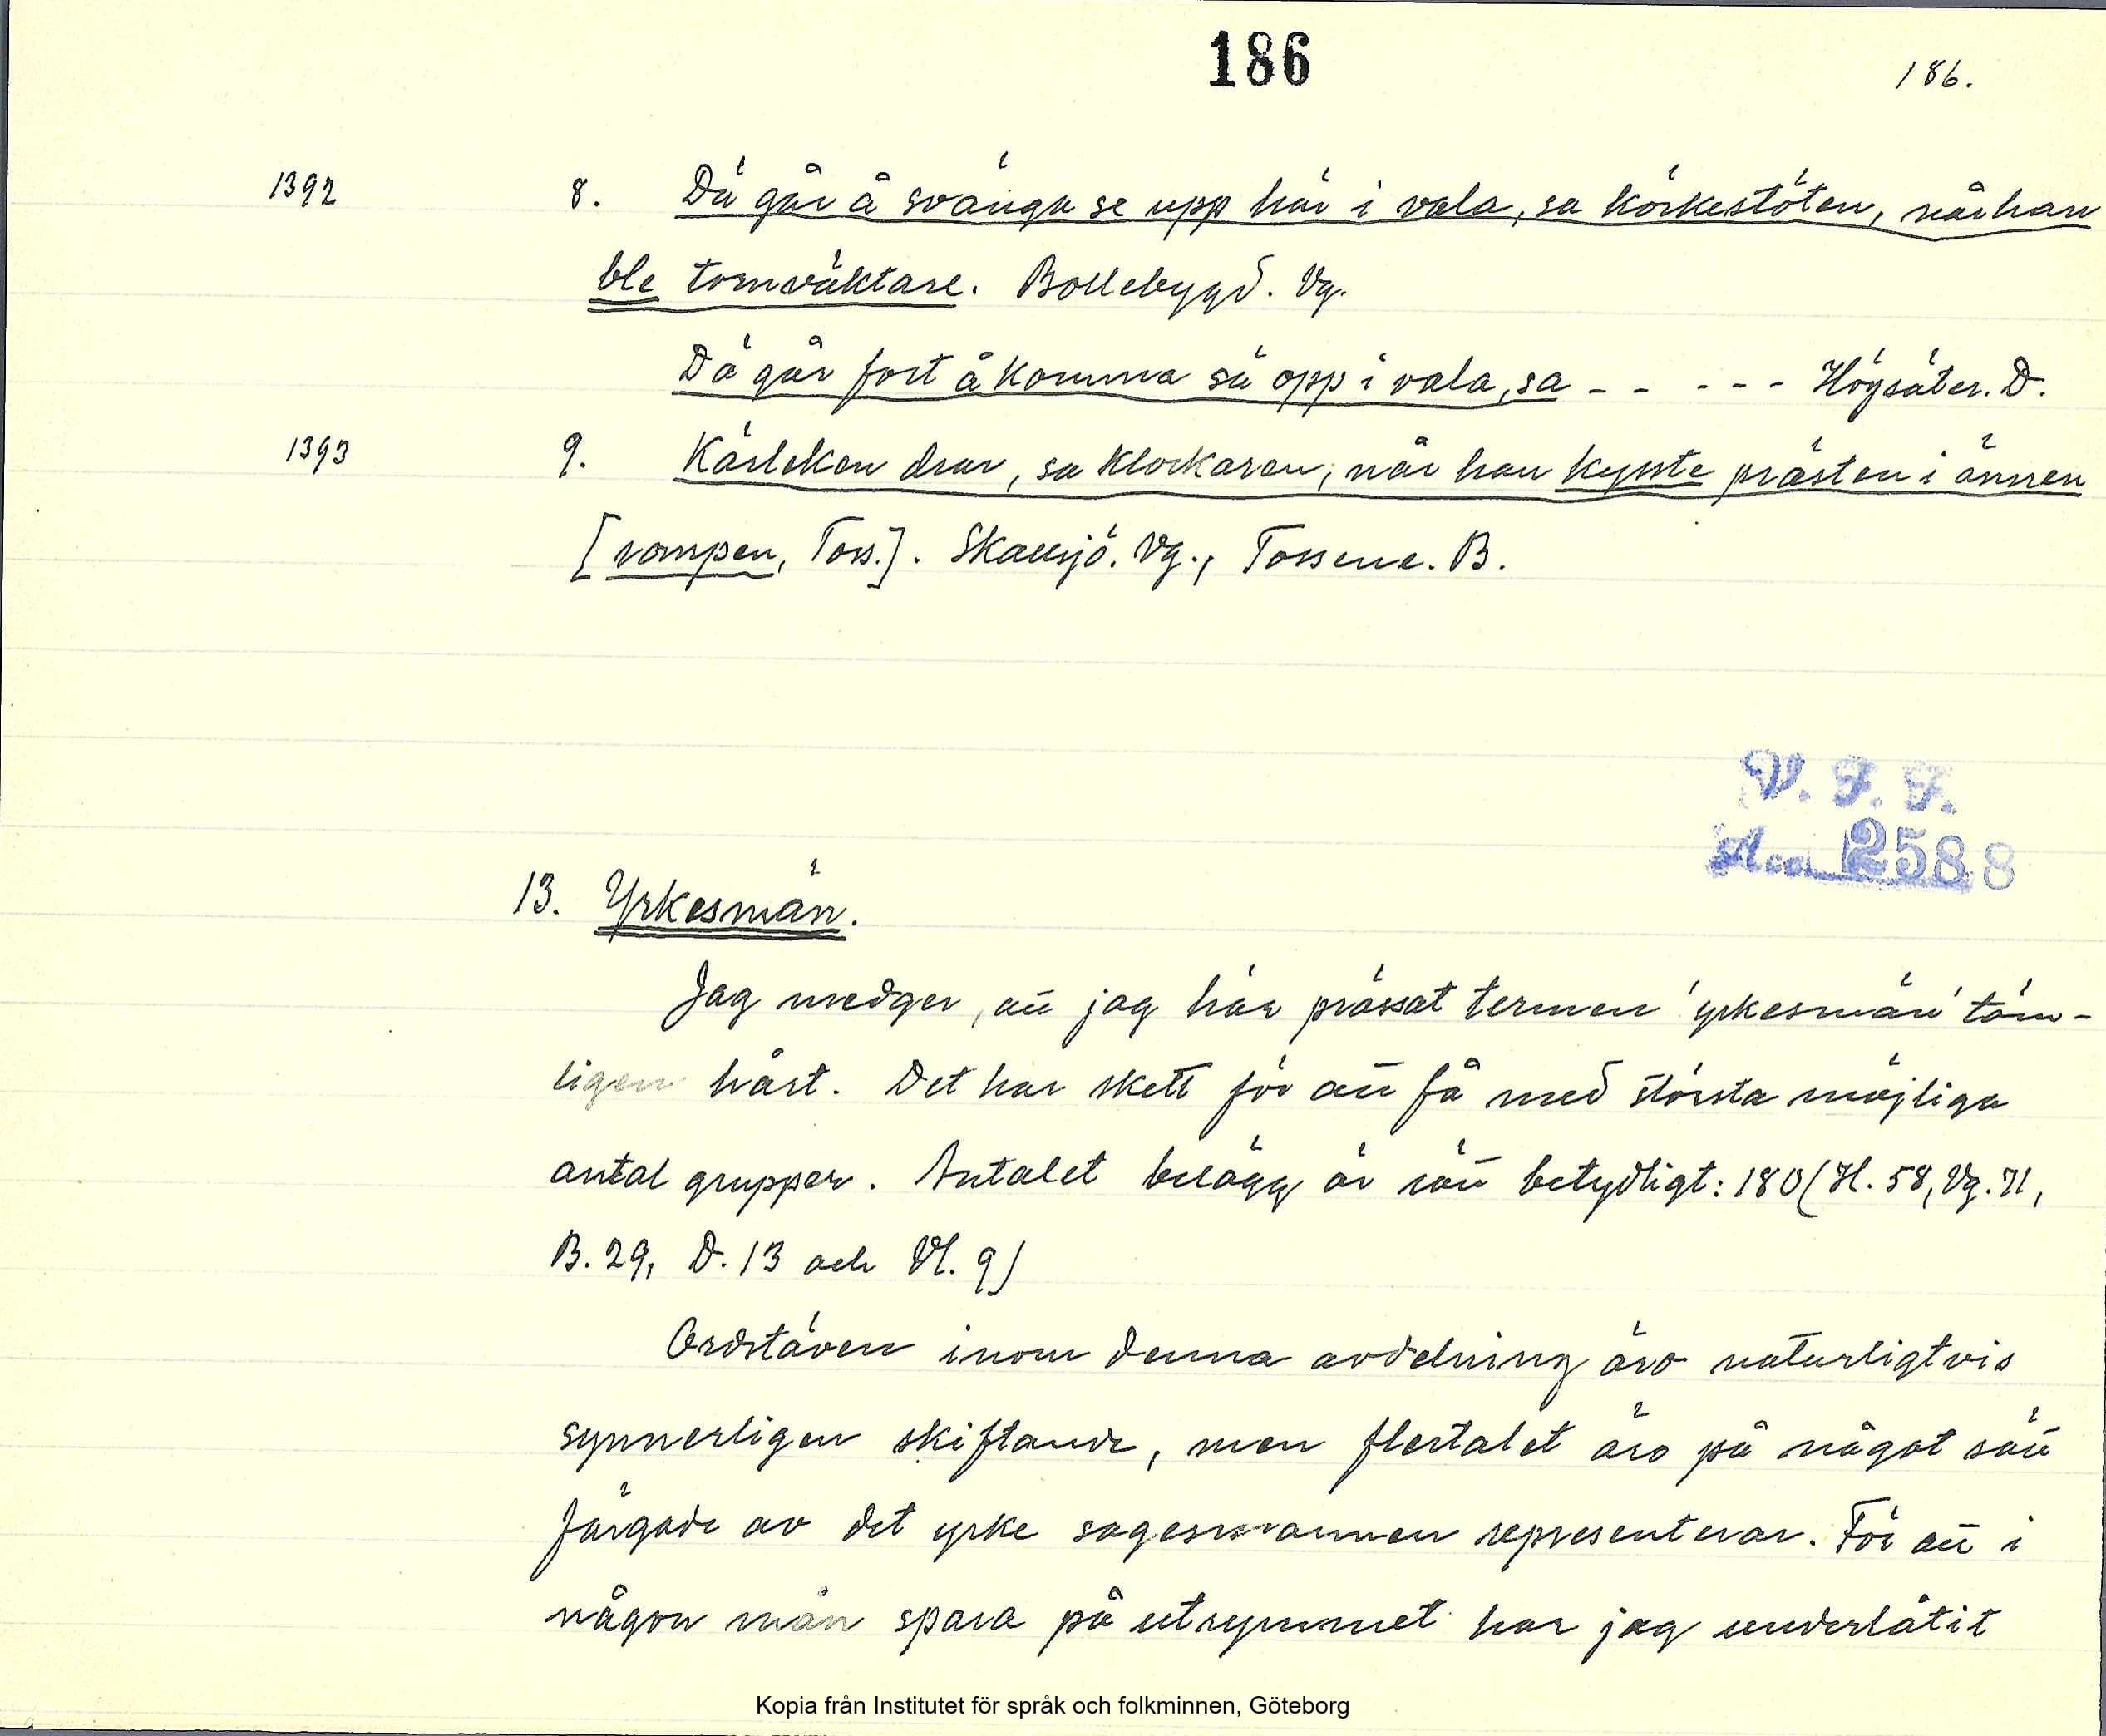 186
186.
1392 8. Dä går å svänga se upp här i väla, sa körkestöten, när han
ble tomväktare. Bollebygd. Vg.
Dä går fort å komma sä opp i väla, sa - - - - - Högsäter. D.
1393 9. Kärleken drar, sa klockaren, när han kysste prästen i ännen
[rompen, Toss.]. Skallsjö. Vg., Tossene. B.
V. F. F.
Acc. 2588
13. Yrkesmän.
Jag medger, att jag här prässat termen 'yrkesmän' täm-
ligen hårt. Det har skett för att få med största möjliga
antal grupper. Antalet belägg är rätt betydligt: 180 (H. 58, Vg. 71,
B. 29, D. 13 och Vl. 9)
Ordstäven inom denna avdelning äro naturligtvis
synnerligen skiftande, men flertalet äro på något sätt
färgade av det yrke sagesmannen representerar. För att i
någon mån spara på utrymmet har jag underlåtit
Kopia från Institutet för språk och folkminnen, Göteborg